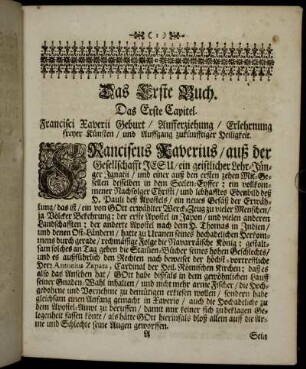 ( 1 )
Das Erste Buch.
Das Erste Capitel.
Francisci Xaverii Geburt / Aufferziehung / Erlehrnung
freyer Künsten / und Auffgang zukünfftiger Heiligkeit.
FRanciscus Xaverius / auß der
Gesellschafft JESU / ein geistlicher Lehr-Jün-
ger Ignatii / und einer auß den ersten zehen Mit-Ge-
sellen desselben in dem Seelen-Eyffer; ein vollkom-
mener Nachfolger Christi / und lebhafftes Ebenbild deß
H. Pauli deß Apostels / ein neues Gefäß der Erwöh-
lung / das ist / ein von GOtt erwählter Werck-Zeug zu viler Menschen /
ja Völcker Bekehrung; der erste Apostel in Japon / und vielen anderen
Landschafften; der anderte Apostel nach dem H. Thomas in Indien /
und denen Ost-Ländern / hatte zu Uranen seines hochadelichen Herkom-
mens durch gerade / rechtmässige Folge die Navarräische König; gestalt-
sam solches an Tag geben die Stamen-Bücher seines hohen Geschlechts /
und es ausführlich den Rechten nach beweiset der höchst-vortreffliche
Herr Antonius Zapata / Cardinal der Heil. Römischen Kirchen; daß es
also das Ansehen hat / GOtt habe dißfalls in dem gewöhnlichen Lauff
seiner Gnaden-Wahl inhalten / und nicht mehr arme Fischer / die Hoch-
gebohrne und Vornehme zu demütigen erkiesen wollen / sondern habe
gleichsam einen Anfang gemacht in Xaverio / auch die Hochadeliche zu
dem Apostel-Ampt zu beruffen / damit nur keiner sich zubeklagen Ge-
legenheit fassen könte / als hätte GOtt hierinfals bloß allein auff die Ar-
me und Schlechte seine Augen geworffen.
A Sein